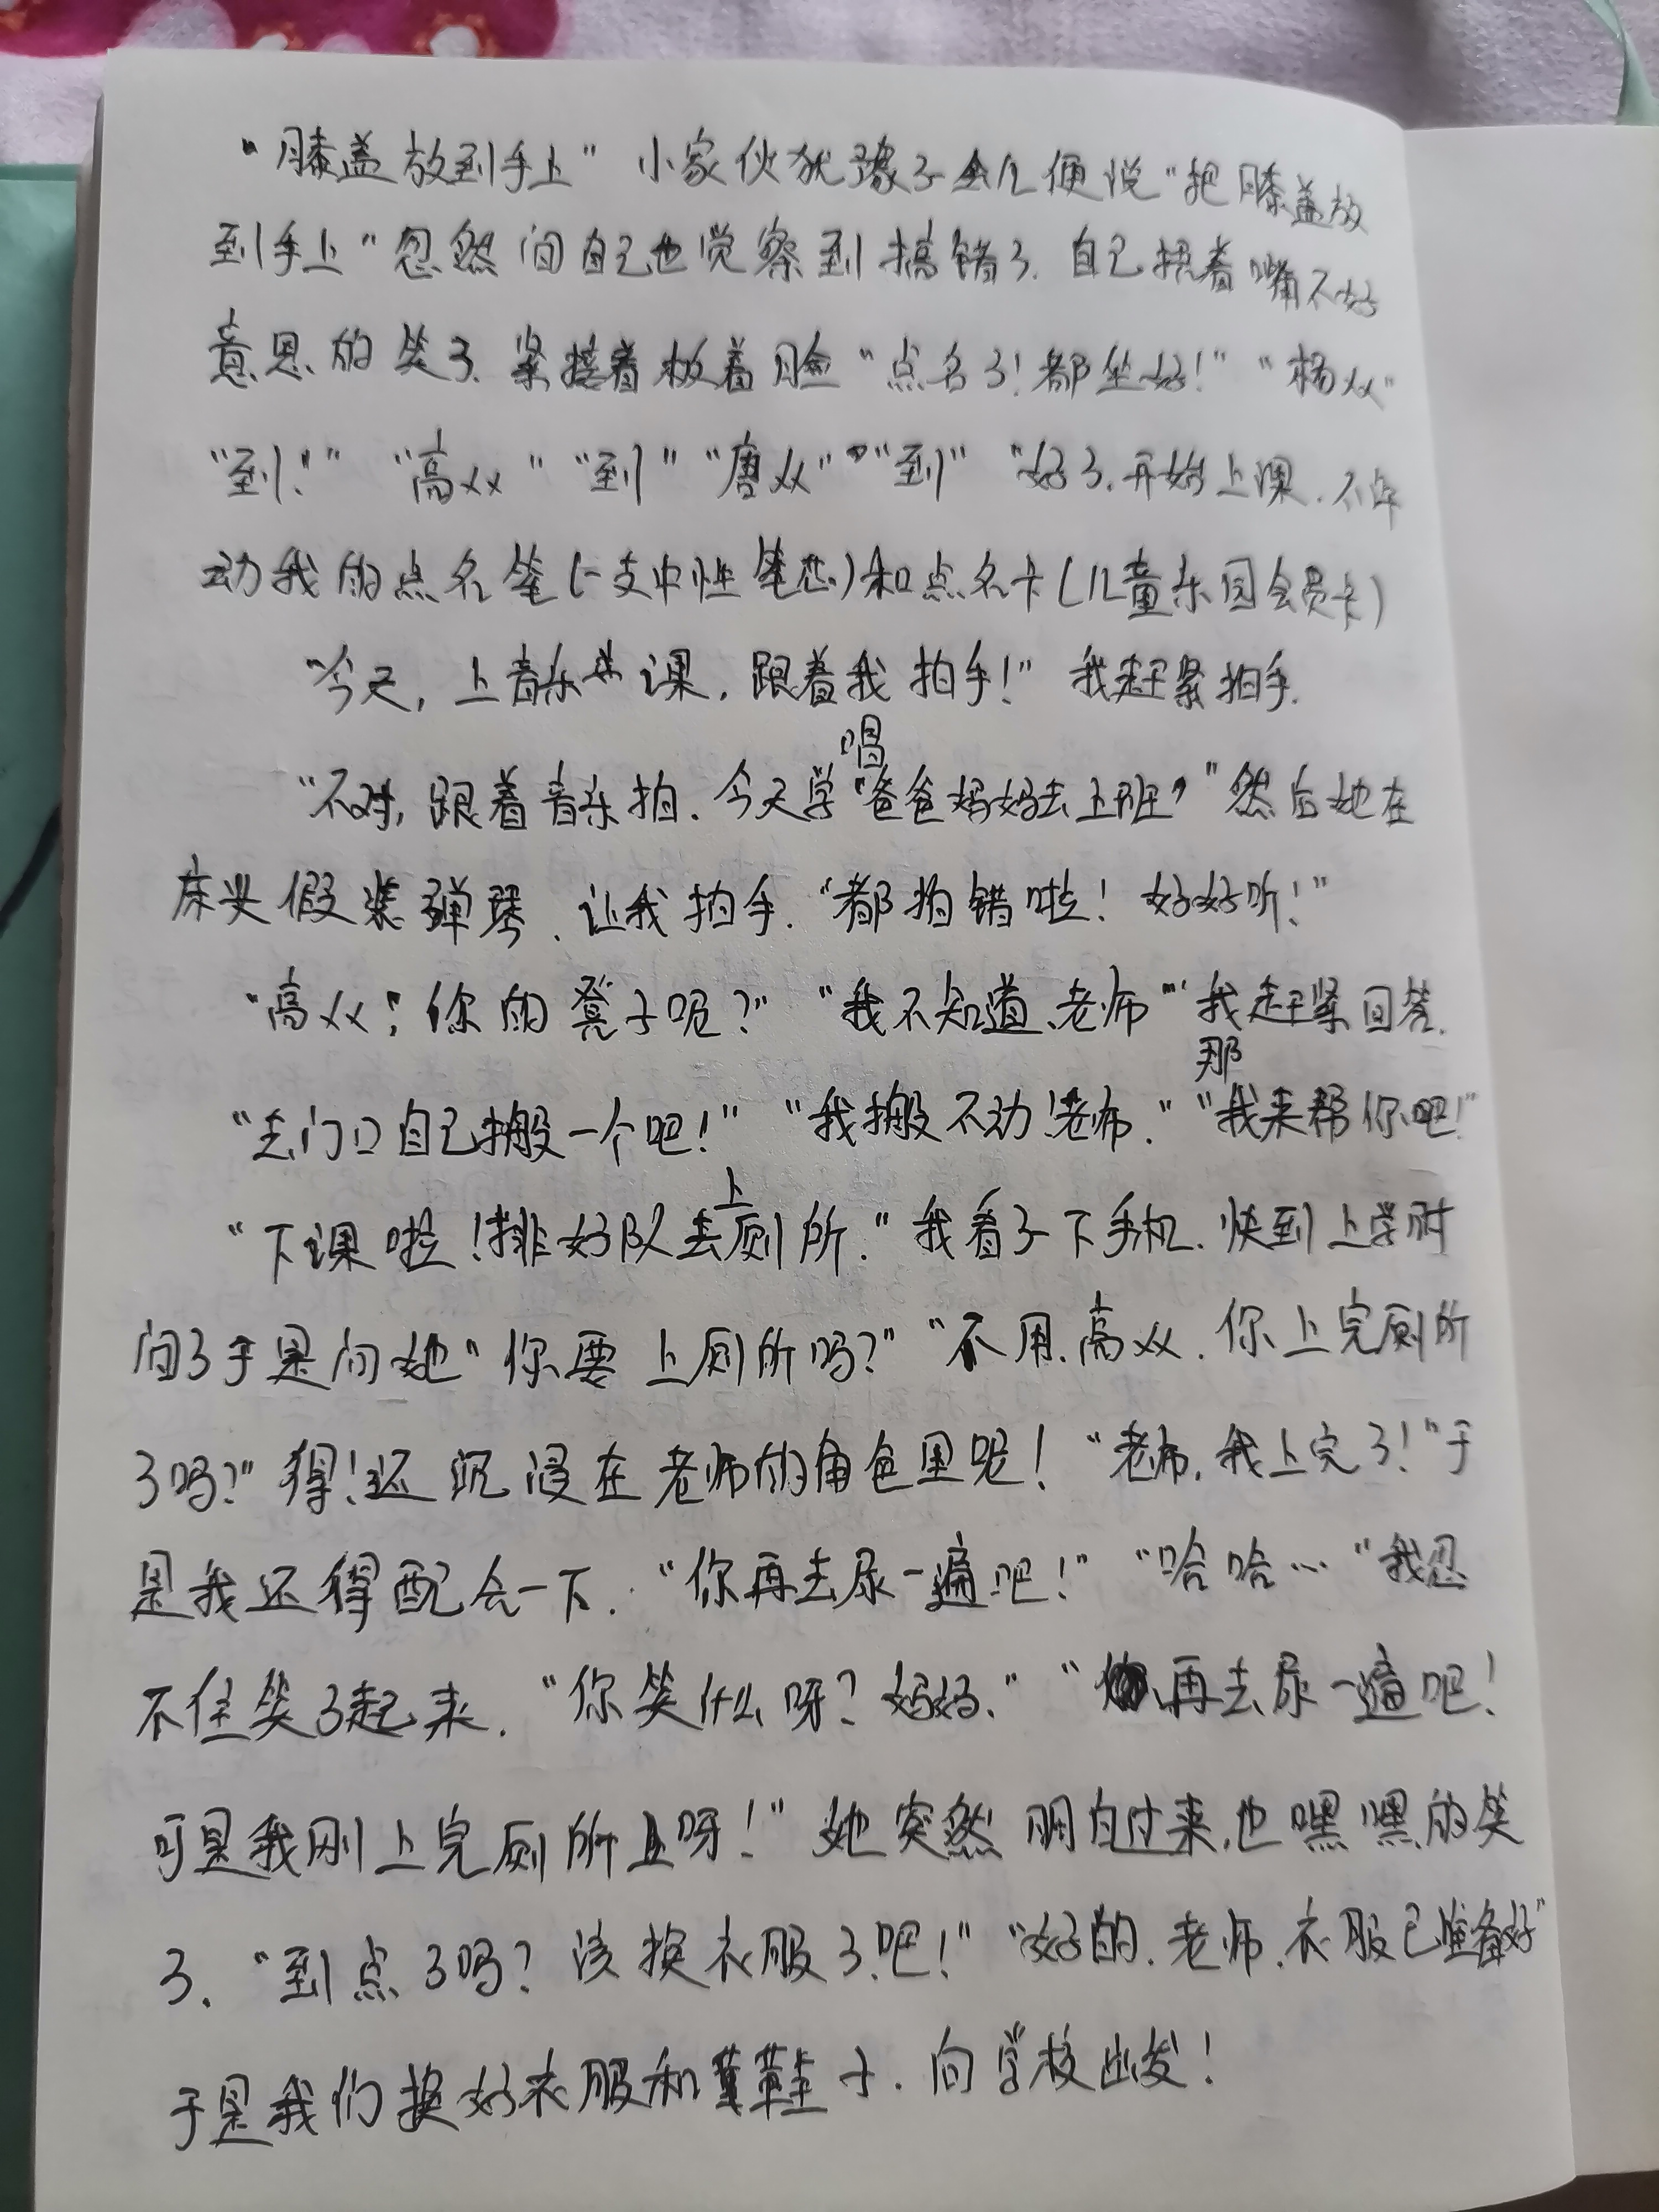 “膝盖放到手上”小家伙犹豫了会儿便说“把膝盖放
到手上”忽然间自己也觉察到搞错了.自己抿着嘴不好
意思的笑了.紧接着板着脸“点名了!都坐好!”“杨××”
“到!”“高××”“到”“唐××”“到”“好了.开始上课.不许
动我的点名笔(一支中性笔芯)和点名卡(儿童乐园会员卡)
“今天,上音乐课,跟着我拍手!”我赶紧拍手.
“不对,跟着音乐拍.今天学唱‘爸爸妈妈去上班’”然后她在
床头假装弹琴.让我拍手.“都拍错啦!好好听!”
“高××!你的凳子呢?”“我不知道、老师”我赶紧回答.
“去门口自己搬一个吧!”“我搬不动!老师.”“那我来帮你吧!”
“下课啦!排好队去上厕所.”我看了下手机.快到上学时
间了于是问她“你要上厕所吗?”“不用.高××.你上完厕所
了吗?”得!还沉浸在老师的角色里呢!“老师,我上完了!”于
是我还得配合一下.“你再去尿一遍吧!”“哈哈…“我忍
不住笑了起来.“你笑什么呀?妈妈.”“再去尿一遍吧!
可是我刚上完厕所呀!”她突然明白过来,也嘿嘿的笑
了.“到点了吗?该换衣服了吧!”“好的.老师.衣服已准备好”
于是我们换好衣服和鞋子.向学校出发!